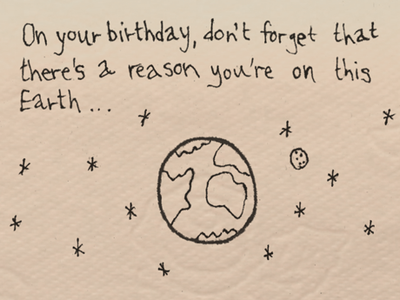 On your birthday, don't forget that
there's a reason you're on this
Earth...